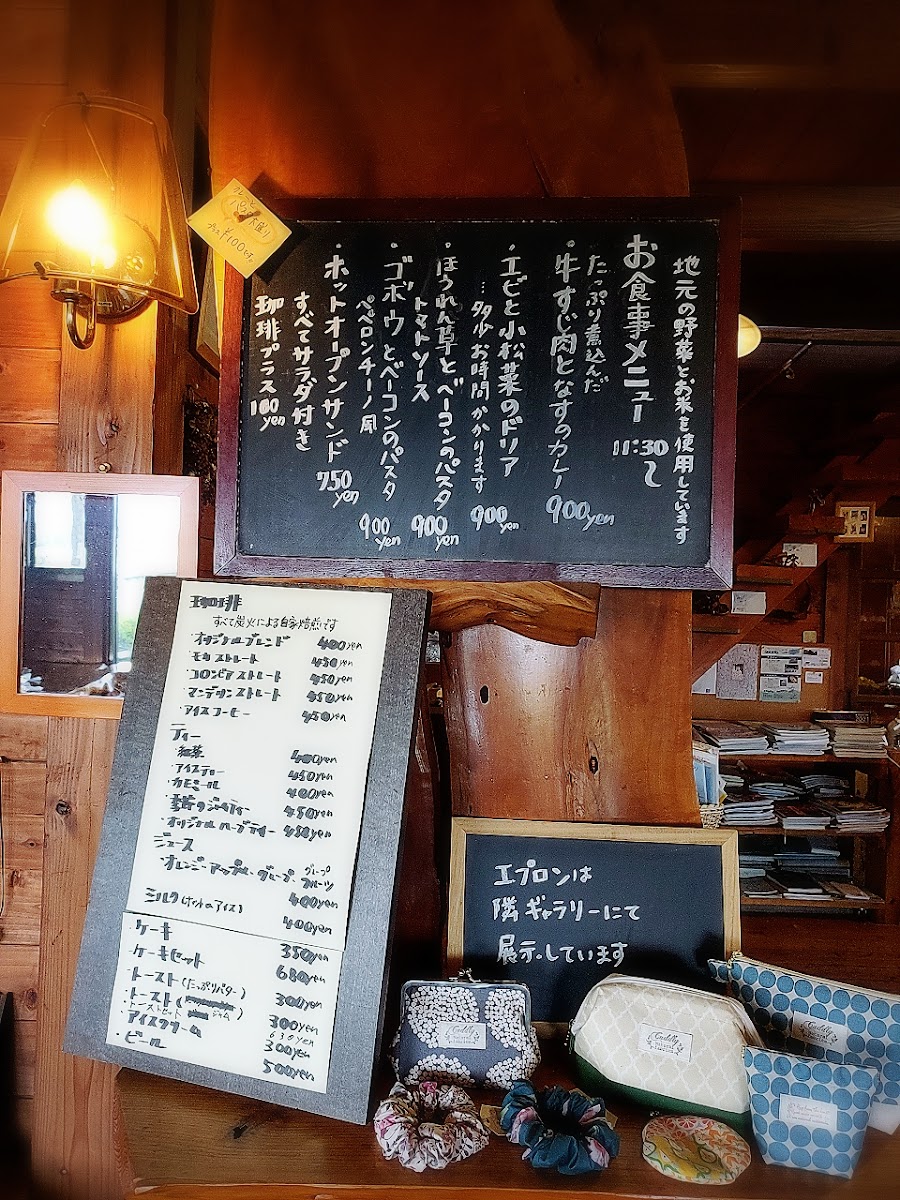 カレーと
パスタ大盛り
プラス¥100です。
地元の野菜とお米を使用しています
お食事メニュー 11:30〜
たっぷり煮込んだ
・牛すじ肉となすのカレー 900yen
・エビと小松菜のドリア 900yen
…多少お時間かかります
・ほうれん草とベーコンのパスタ 900yen
トマトソース
・ゴボウとベーコンのパスタ 900yen
ペペロンチーノ風
・ホットオーブンサンド 750yen
すべてサラダ付き
珈琲プラス100yen
珈琲
すべて炭火による自家焙煎です
・オリジナルブレンド 400yen
・モカストレート 450yen
・コロンビアストレート 450yen
・マンデリンストレート 450yen
・アイスコーヒー 450yen
ティー
・紅茶 400yen
・アイスティー 450yen
・カモミール 400yen
450yen
・オリジナルハーブティー 450yen
ジュース
・オレンジ・アップル・グレープ・グレープフルーツ
400yen
ミルク(ホットorアイス) 400yen
・ケーキ 350yen
・ケーキセット 680yen
・トースト(たっぷりバター) 300yen
・トースト( ジャム) 300yen
・トーストセット 630yen
・アイスクリーム 300yen
・ビール 500yen
エプロンは
隣ギャラリーにて
展示しています
Cuddly
Cuddly
Cuddly